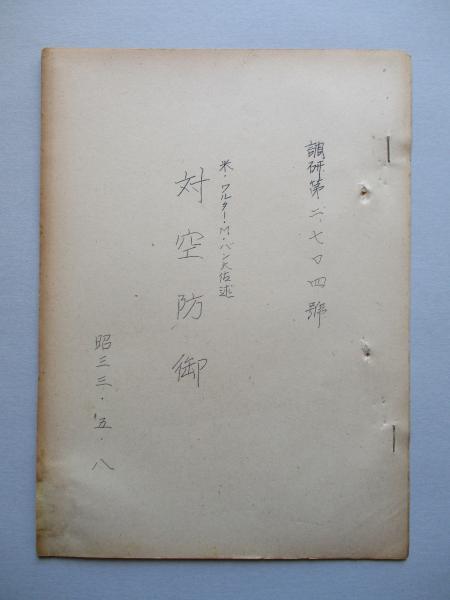 調研第二、七〇四號
米・ワルター・M・バン大佐述
対空防御
昭三三・五・八